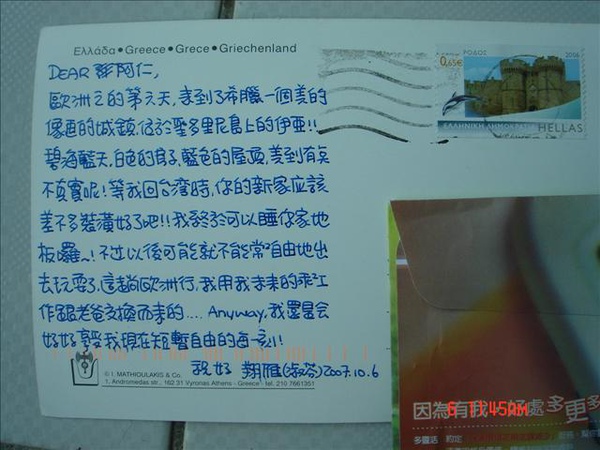 Ελλάδα • Greece • Grece • Griechenland
DEAR 群阿仁,
歐洲之的第六天,來到了希臘一個美的
像畫的城鎮,位於聖多里尼島上的伊亞!!
碧海藍天,白色的房子,藍色的屋頂,美到有點
不真實呢!等我回台灣時,你的新家應該
差不多裝潢好了吧!!我終於可以睡你家地
板囉~!不过以後可能就不能常自由地出
去玩耍了,這趟歐洲行,我用我未來的乖乖工
作跟老爸交換而來的.... Anyway,我還是會
好好享受我現在短暫自由的每一刻!!
祝好 翔雁(淑芬)2007.10.6
© I. MATHIOULAKIS & Co.
1. Andromedas str., 162 31 Vyronas Athens - Greece tel. 210 7661351
ΡΟΔΟΣ
2006
0,65€
ΕΛΛΗΝΙΚΗ ΔΗΜΟΚΡΑΤΙΑ HELLAS
因為有我,好處多更多
多靈活
約定